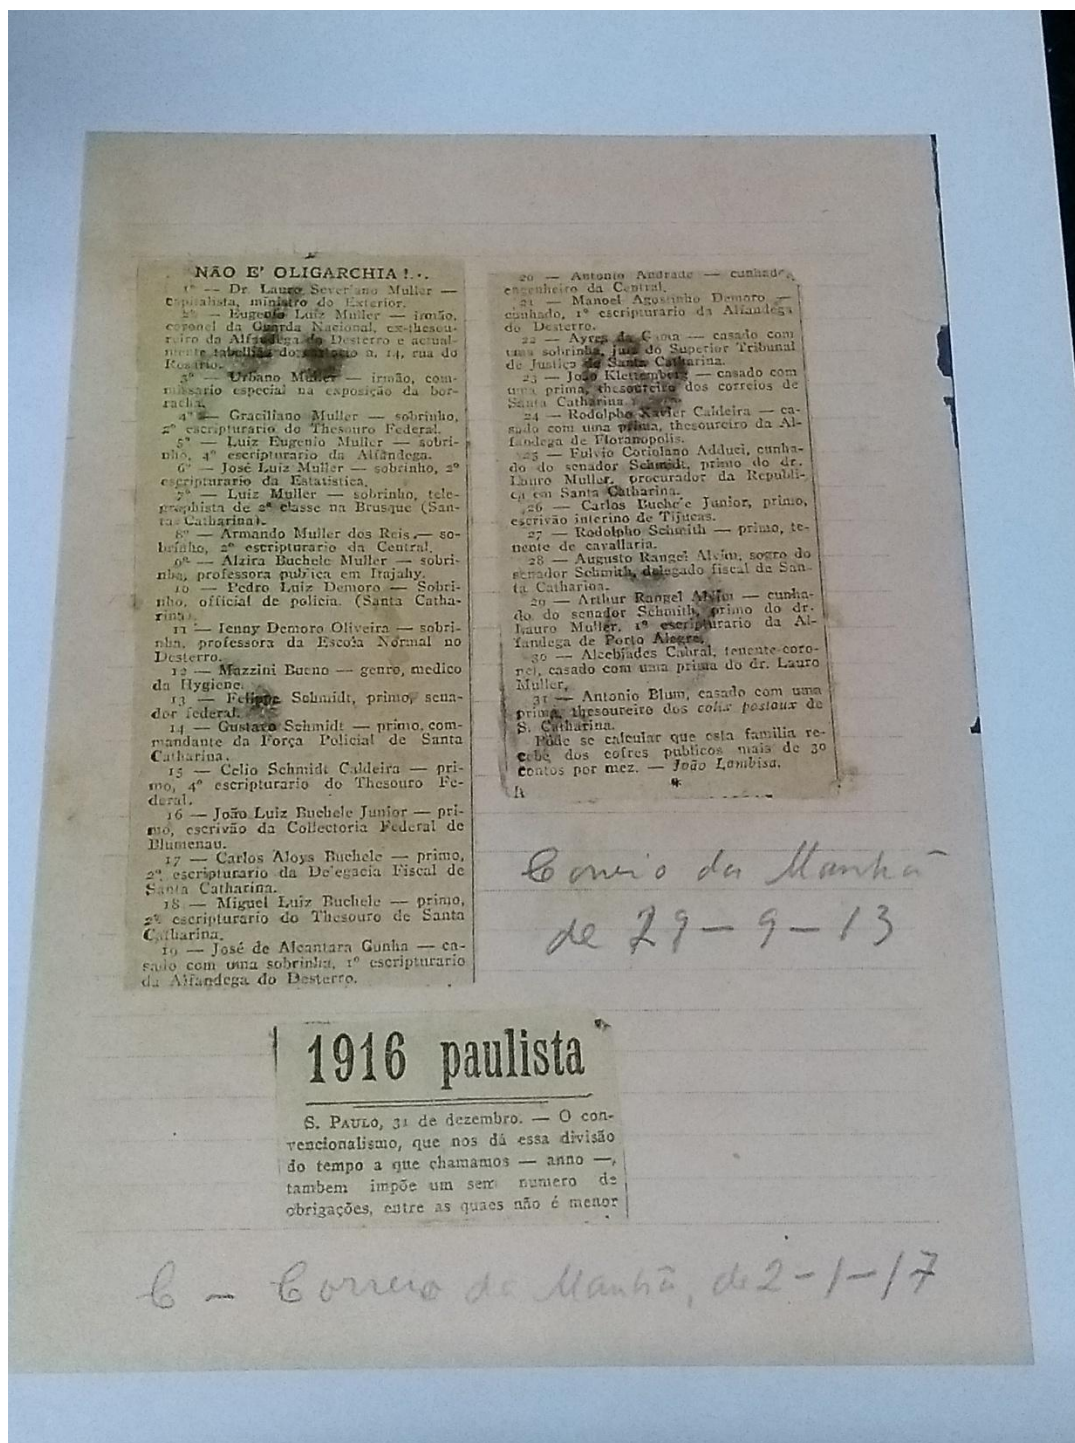 NÃO E' OLIGARCHIA!...
1º — Dr. Lauro Severiano Muller —
capitalista, ministro do Exterior.
2º — Eugenio Luiz Muller — irmão,
coronel da Guarda Nacional, ex-thesou-
reiro da Alfandega do Desterro e actual-
mente tabellião do cartorio n. 14, rua do
Rosario.
3º — Urbano Muller — irmão, com-
missario especial na exposição da bor-
racha.
4º — Graciliano Muller — sobrinho,
2º escripturario do Thesouro Federal.
5º — Luiz Eugenio Muller — sobri-
nho, 4º escripturario da Alfandega.
6º — José Luiz Muller — sobrinho, 2º
escripturario da Estatistica.
7º — Luiz Muller — sobrinho, tele-
graphista de 2ª classe na Brusque (San-
ta Catharina).
8º — Armando Muller dos Reis — so-
brinho, 2º escripturario da Central.
9º — Alzira Buchele Muller — sobri-
nha, professora publica em Itajahy.
10 — Pedro Luiz Demoro — Sobri-
nho, official de policia. (Santa Catha-
rina).
11 — Jenny Demoro Oliveira — sobri-
nha, professora da Escola Normal no
Desterro.
12 — Mazzini Bueno — genro, medico
da Hygiene.
13 — Felippe Schmidt, primo, sena-
dor federal.
14 — Gustavo Schmidt — primo, com-
mandante da Força Policial de Santa
Catharina.
15 — Celio Schmidt Caldeira — pri-
mo, 4º escripturario do Thesouro Fe-
deral.
16 — João Luiz Buchele Junior — pri-
mo, escrivão da Collectoria Federal de
Blumenau.
17 — Carlos Aloys Buchele — primo,
2º escripturario da Delegacia Fiscal de
Santa Catharina.
18 — Miguel Luiz Buchele — primo,
2º escripturario do Thesouro de Santa
Catharina.
19 — José de Alcantara Gunha — ca-
sado com uma sobrinha, 1º escripturario
da Alfandega do Desterro.
20 — Antonio Andrade — cunhado,
engenheiro da Central.
21 — Manoel Agostinho Demoro —
cunhado, 1º escripturario da Alfandega
do Desterro.
22 — Ayres da Gama — casado com
uma sobrinha, juiz do Superior Tribunal
de Justiça de Santa Catharina.
23 — João Klettemberg — casado com
uma prima, thesoureiro dos correios de
Santa Catharina.
24 — Rodolpho Xavier Caldeira — ca-
sado com uma prima, thesoureiro da Al-
fandega de Floranopolis.
25 — Fulvio Coriolano Adduci, cunha-
do do senador Schmidt, primo do dr.
Lauro Muller, procurador da Republi-
ca em Santa Catharina.
26 — Carlos Buchele Junior, primo,
escrivão interino de Tijucas.
27 — Rodolpho Schmith — primo, te-
nente de cavallaria.
28 — Augusto Rangel Alvim, sogro do
senador Schmith, delegado fiscal de San-
ta Catharina.
29 — Arthur Rangel Alvim — cunha-
do do senador Schmith, primo do dr.
Lauro Muller, 1º escripturario da Al-
fandega de Porto Alegre.
30 — Alcebiades Cabral, tenente-coro-
nel, casado com uma prima do dr. Lauro
Muller,
31 — Antonio Blum, casado com uma
prima, thesoureiro dos colix postaux de
S. Catharina.
Póde se calcular que esta familia re-
cebe dos cofres publicos mais de 30
contos por mez. — João Lambisa.
Correio da Manhã
de 29-9-13
1916 paulista
S. PAULO, 31 de dezembro. — O con-
vencionalismo, que nos dá essa divisão
do tempo a que chamamos — anno —,
tambem impõe um sem numero de
obrigações, entre as quaes não é menor
C — Correio da Manhã, de 2-1-17